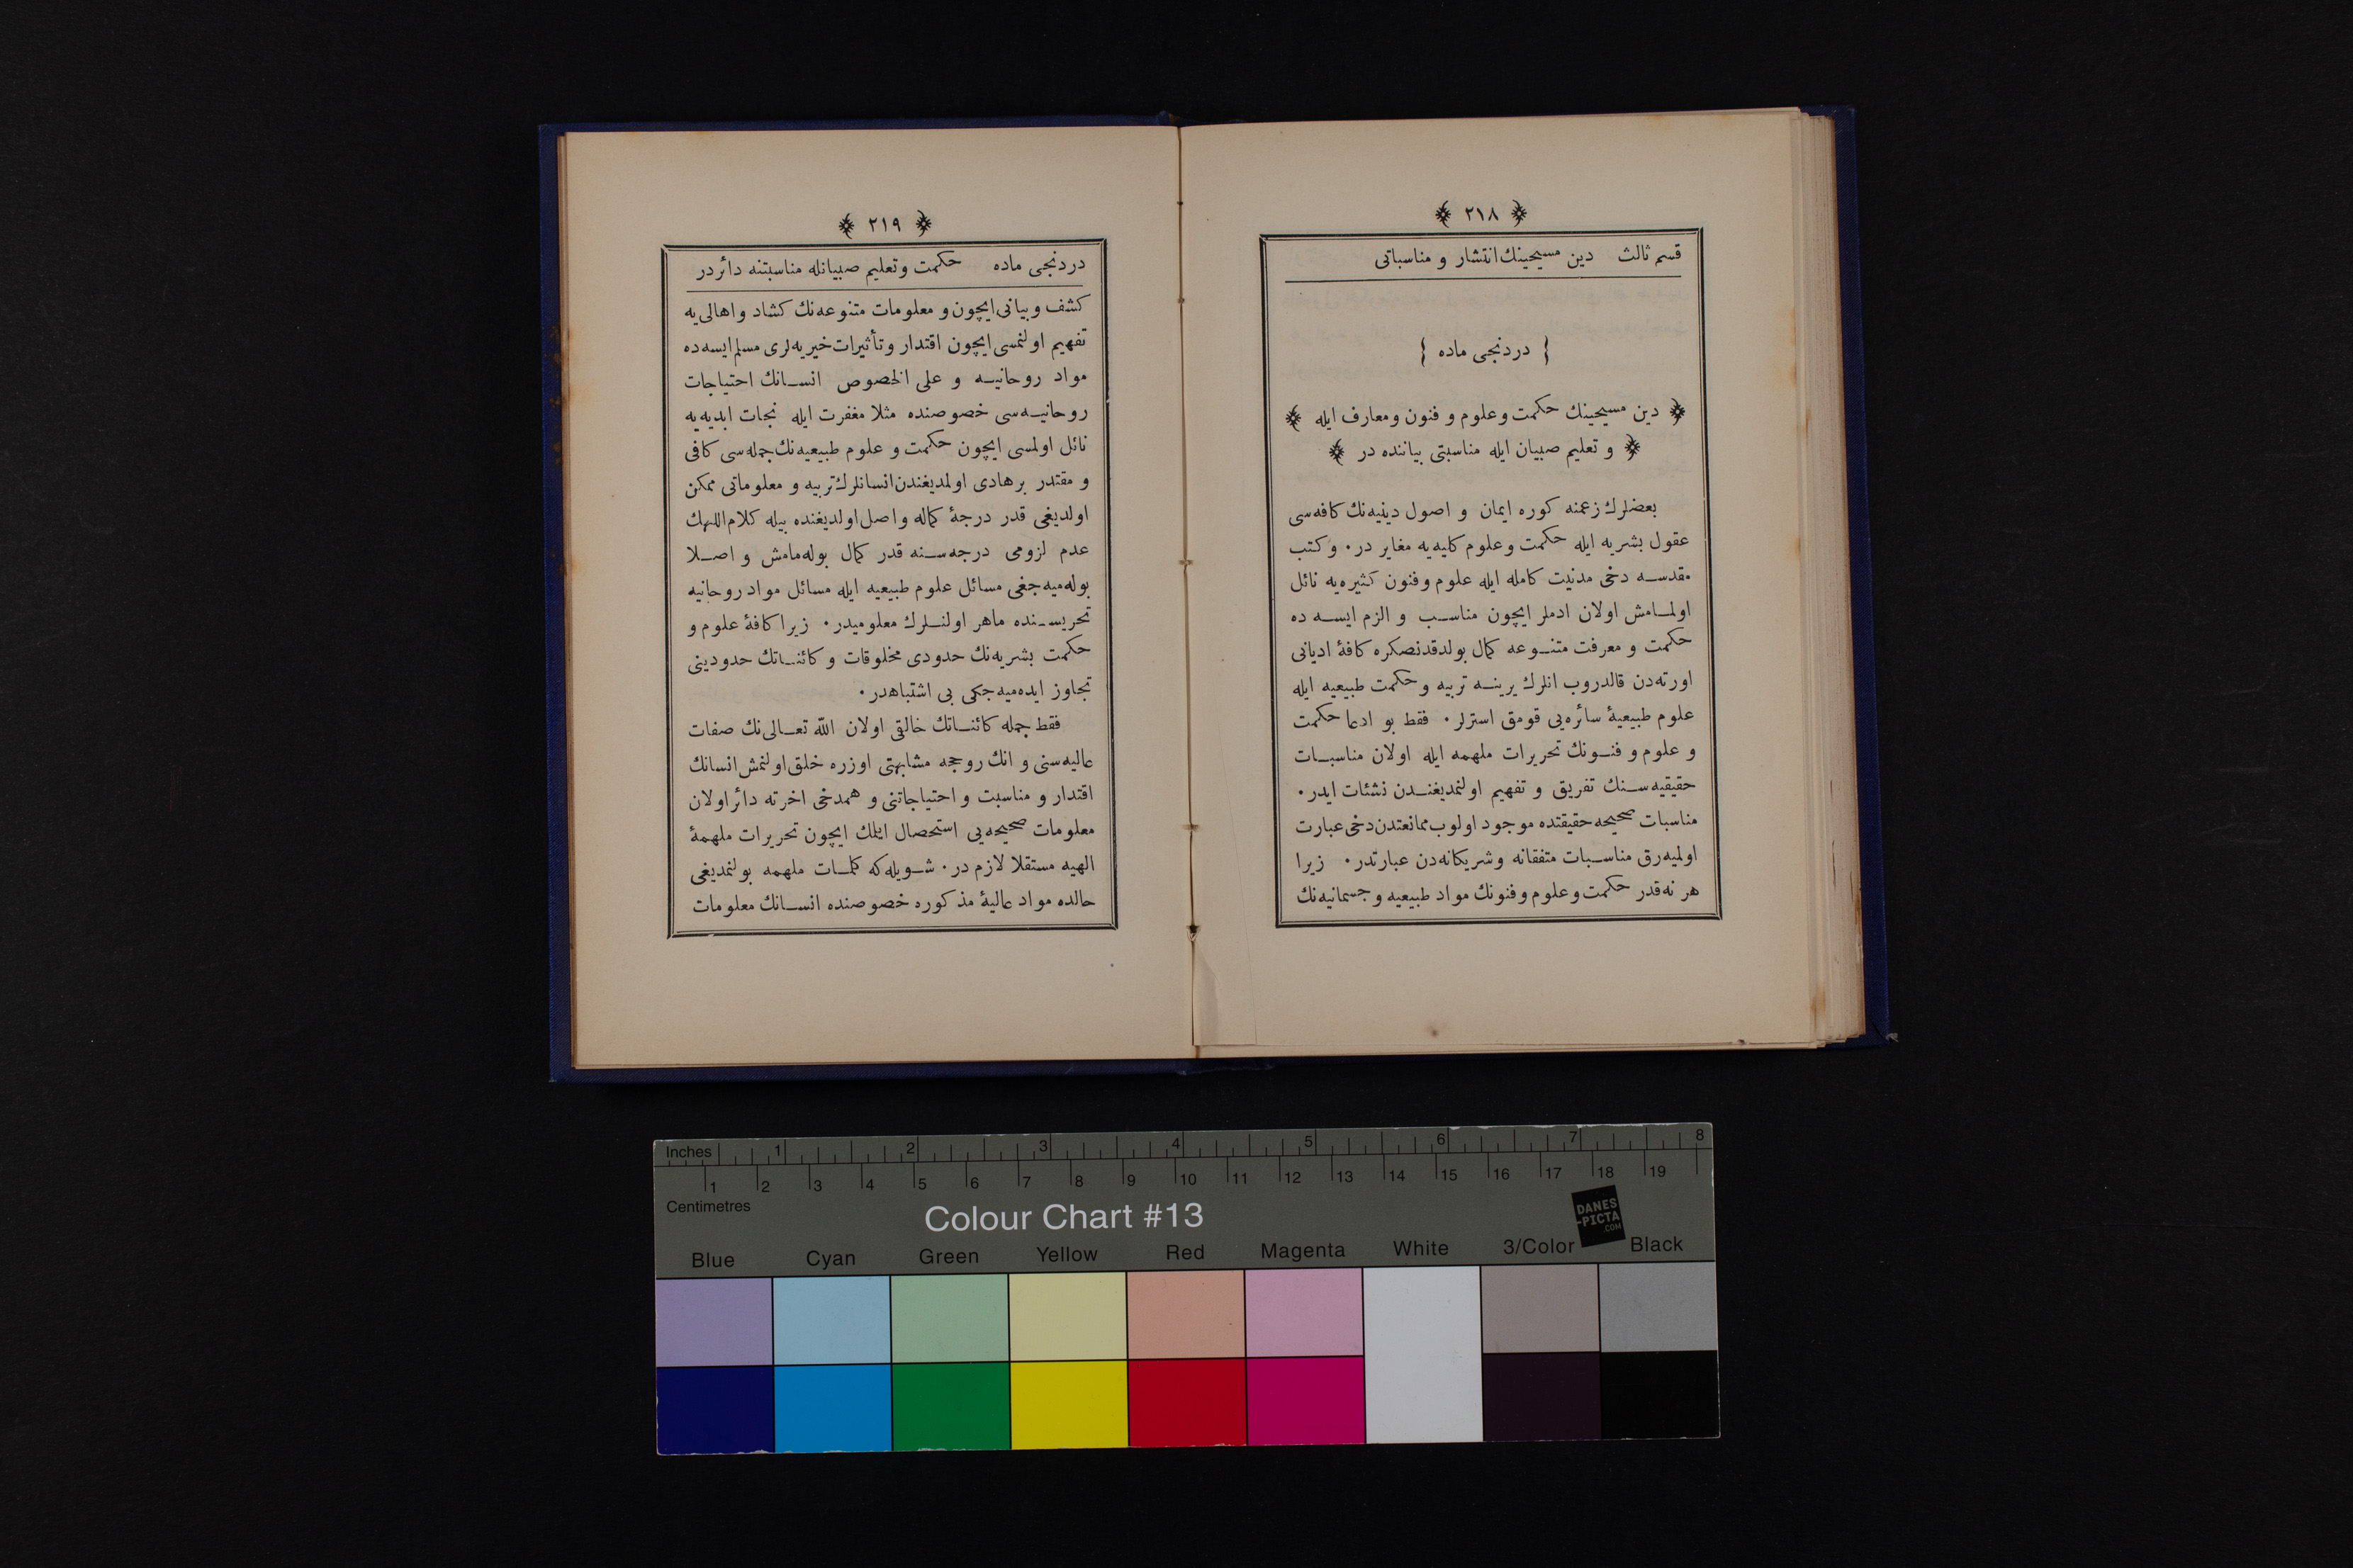 ﴿ ٢١٨ ﴾
قسم ثالث دين مسيحينك انتشار و مناسباتى
{ دردنجى ماده }
﴿ دين مسيحينك حكمت وعلوم و فنون ومعارف ايله ﴾
﴿ و تعليم صبيان ايله مناسبتى بياننده در ﴾
بعضلرك زعمنه كوره ايمان و اصول دينيه‌نك كافه‌سى
عقول بشريه ايله حكمت وعلوم كليه‌يه مغاير در٠ وكتب
مقدسه دخى مدنيت كامله ايله علوم وفنون كثيره‌يه نائل
اولمامش اولان ادملر ايچون مناسب و الزم ايسه ده
حكمت و معرفت متنوعه كمال بولدقدنصكره كافۀ اديانى
اورته‌دن قالدروب انلرك يرينه تربيه وحكمت طبيعيه ايله
علوم طبيعيۀ سائره‌يى قومق استرلر٠ فقط بو ادعا حكمت
و علوم و فنونك تحريرات ملهمه ايله اولان مناسبات
حقيقيه‌سنك تفريق و تفهيم اولنمديغندن نشئات ايدر٠
مناسبات صحيحه حقيقتده موجود اولوب ممانعتدن دخى عبارت
اولميه‌رق مناسبات متفقانه وشريكانه‌دن عبارتدر٠ زيرا
هر نه‌قدر حكمت وعلوم وفنونك مواد طبيعيه وجسمانيه‌نك
﴿ ٢١٩ ﴾
دردنجى ماده حكمت وتعليم صبيانله مناسبتنه دائردر
كشف وبيانى ايچون و معلومات متنوعه‌نك كشاد واهالى‌يه
تفهيم اولنمسى ايچون اقتدار وتأثيرات خيريه‌لرى مسلم ايسه‌ده
مواد روحانيه و على الخصوص انسانك احتياجات
روحانيه‌سى خصوصنده مثلا مغفرت ايله نجات ابديه‌يه
نائل اولمسى ايچون حكمت و علوم طبيعيه‌نك جمله‌سى كافى
و مقتدر برهادى اولمديغندن انسانلرك تربيه و معلوماتى ممكن
اولديغى قدر درجۀ كماله واصل اولديغنده بيله كلام اللهك
عدم لزومى درجه‌سنه قدر كمال بوله‌مامش و اصلا
بوله‌ميه‌جغى مسائل علوم طبيعيه ايله مسائل مواد روحانيه
تحريسنده ماهر اولنلرك معلوميدر٠ زيرا كافۀ علوم و
حكمت بشريه‌نك حدودى مخلوقات و كائناتك حدودينى
تجاوز ايده‌ميه‌جكى بى اشتباهدر٠
فقط جمله كائناتك خالقى اولان الله تعالى‌نك صفات
عاليه‌سنى و انك روحجه مشابهتى اوزره خلق اولنمش انسانك
اقتدار و مناسبت و احتياجاتنى و همدخى اخرته دائر اولان
معلومات صحيحه‌يى استحصال ايلمك ايچون تحريرات ملهمۀ
الهيه مستقلا لازم در٠ شويله‌كه كلمات ملهمه بولنمديغى
حالده مواد عاليۀ مذكوره خصوصنده انسانك معلومات
Inches 1 2 3 4 5 6 7 8
1 2 3 4 5 6 7 8 9 10 11 12 13 14 15 16 17 18 19
Centimetres
Colour Chart #13
DANES
-PICTA
.COM
Blue Cyan Green Yellow Red Magenta White 3/Color Black